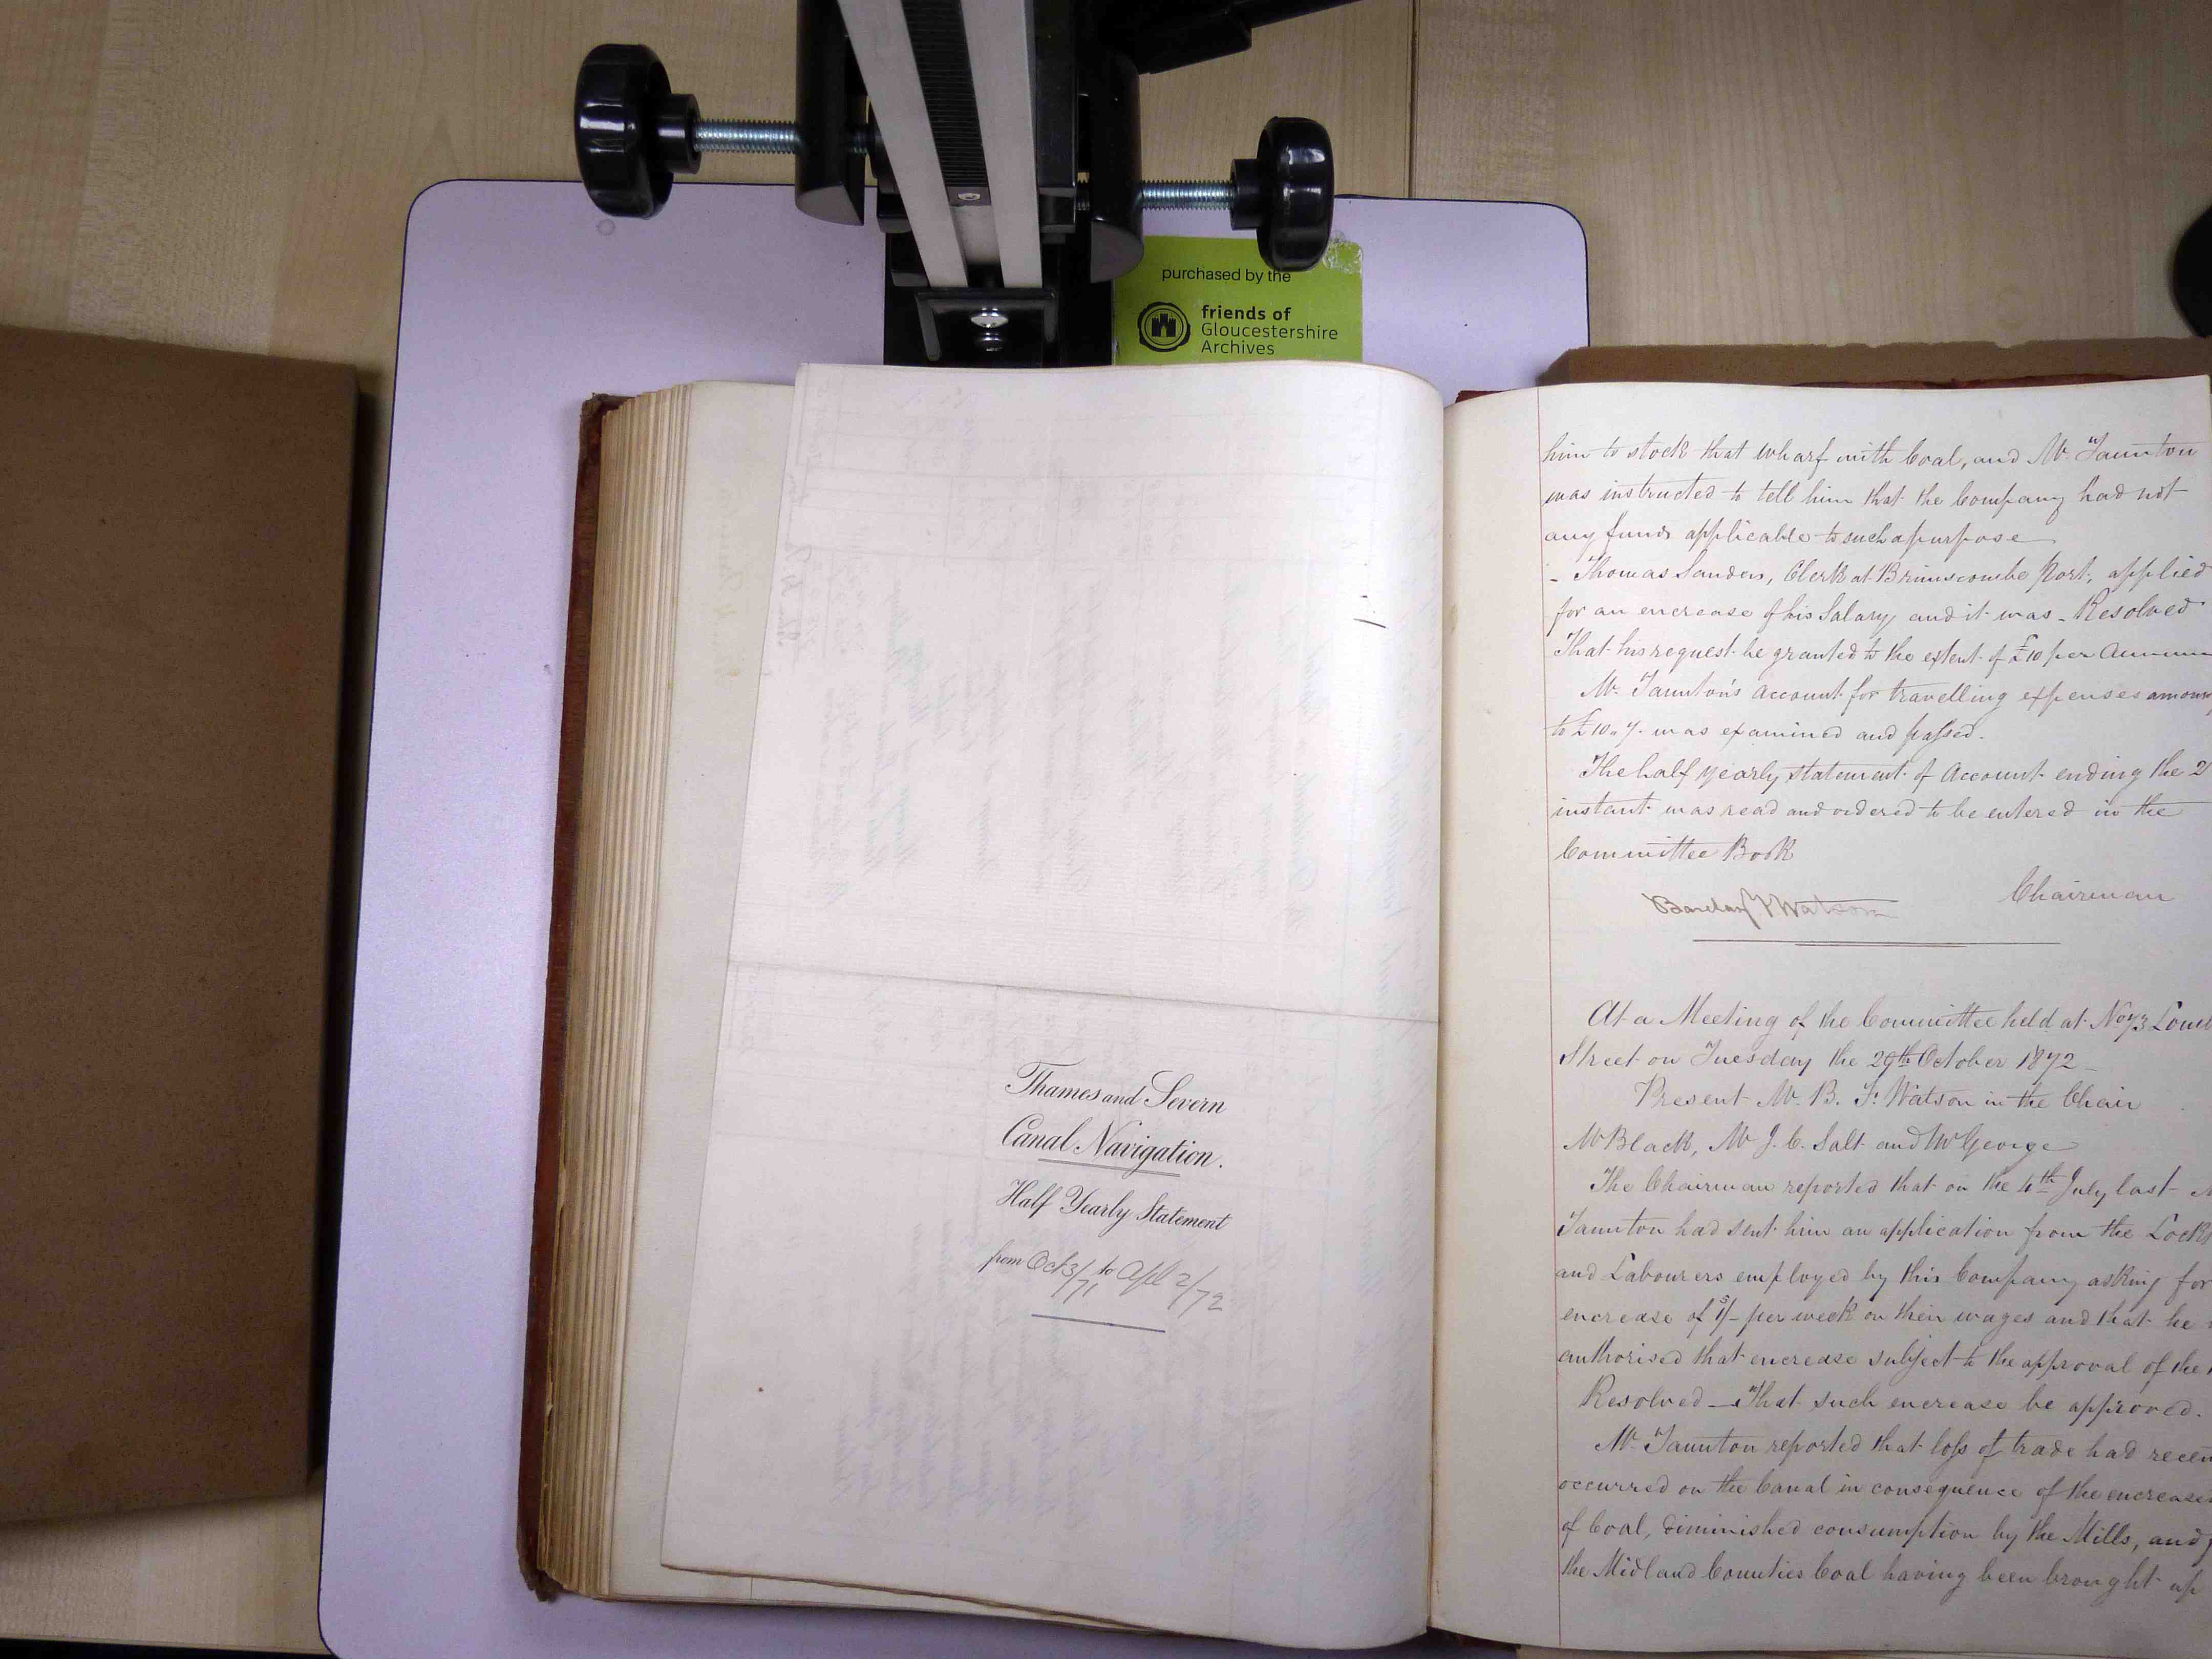 purchased by the
friends of
Gloucestershire
Archives
Thames and Severn
Canal Navigation.
Half Yearly Statement
from Oct 3/71 to Apl 2/72
him to stock that wharf with Coal, and Mr. Taunton
was instructed to tell him that the Company had not
any funds applicable to such a purpose
- Thomas Sanders, Clerk at Brimscombe Port, applied
for an encrease of his Salary and it was - Resolved
That his request be granted to the extent of £10 per Annum
Mr. Taunton's account for travelling expenses amoun
to £10.. 7. was examined and passed.
The half yearly statement of Account ending the 2
instant was read and ordered to be entered in the
Committee Book
Barclay F Watson Chairman
At a Meeting of the Committee held at No 73 Lomb
Street on Tuesday the 29th October 1872
Present Mr. B. F. Watson in the Chair
Mr Black, Mr J. C. Salt and Mr George
The Chairman reported that on the 4th July last M
Taunton had sent him an application from the Lock
and Labourers employed by this Company asking for
encrease of 1/- per week on their wages and that he
authorised that encrease subject to the approval of the
Resolved - That such encrease be approved.
Mr. Taunton reported that loss of trade had recen
occurred on the Canal in consequence of the encrease
of Coal, diminished consumption by the Mills, and
the Midland Counties Coal having been brought up